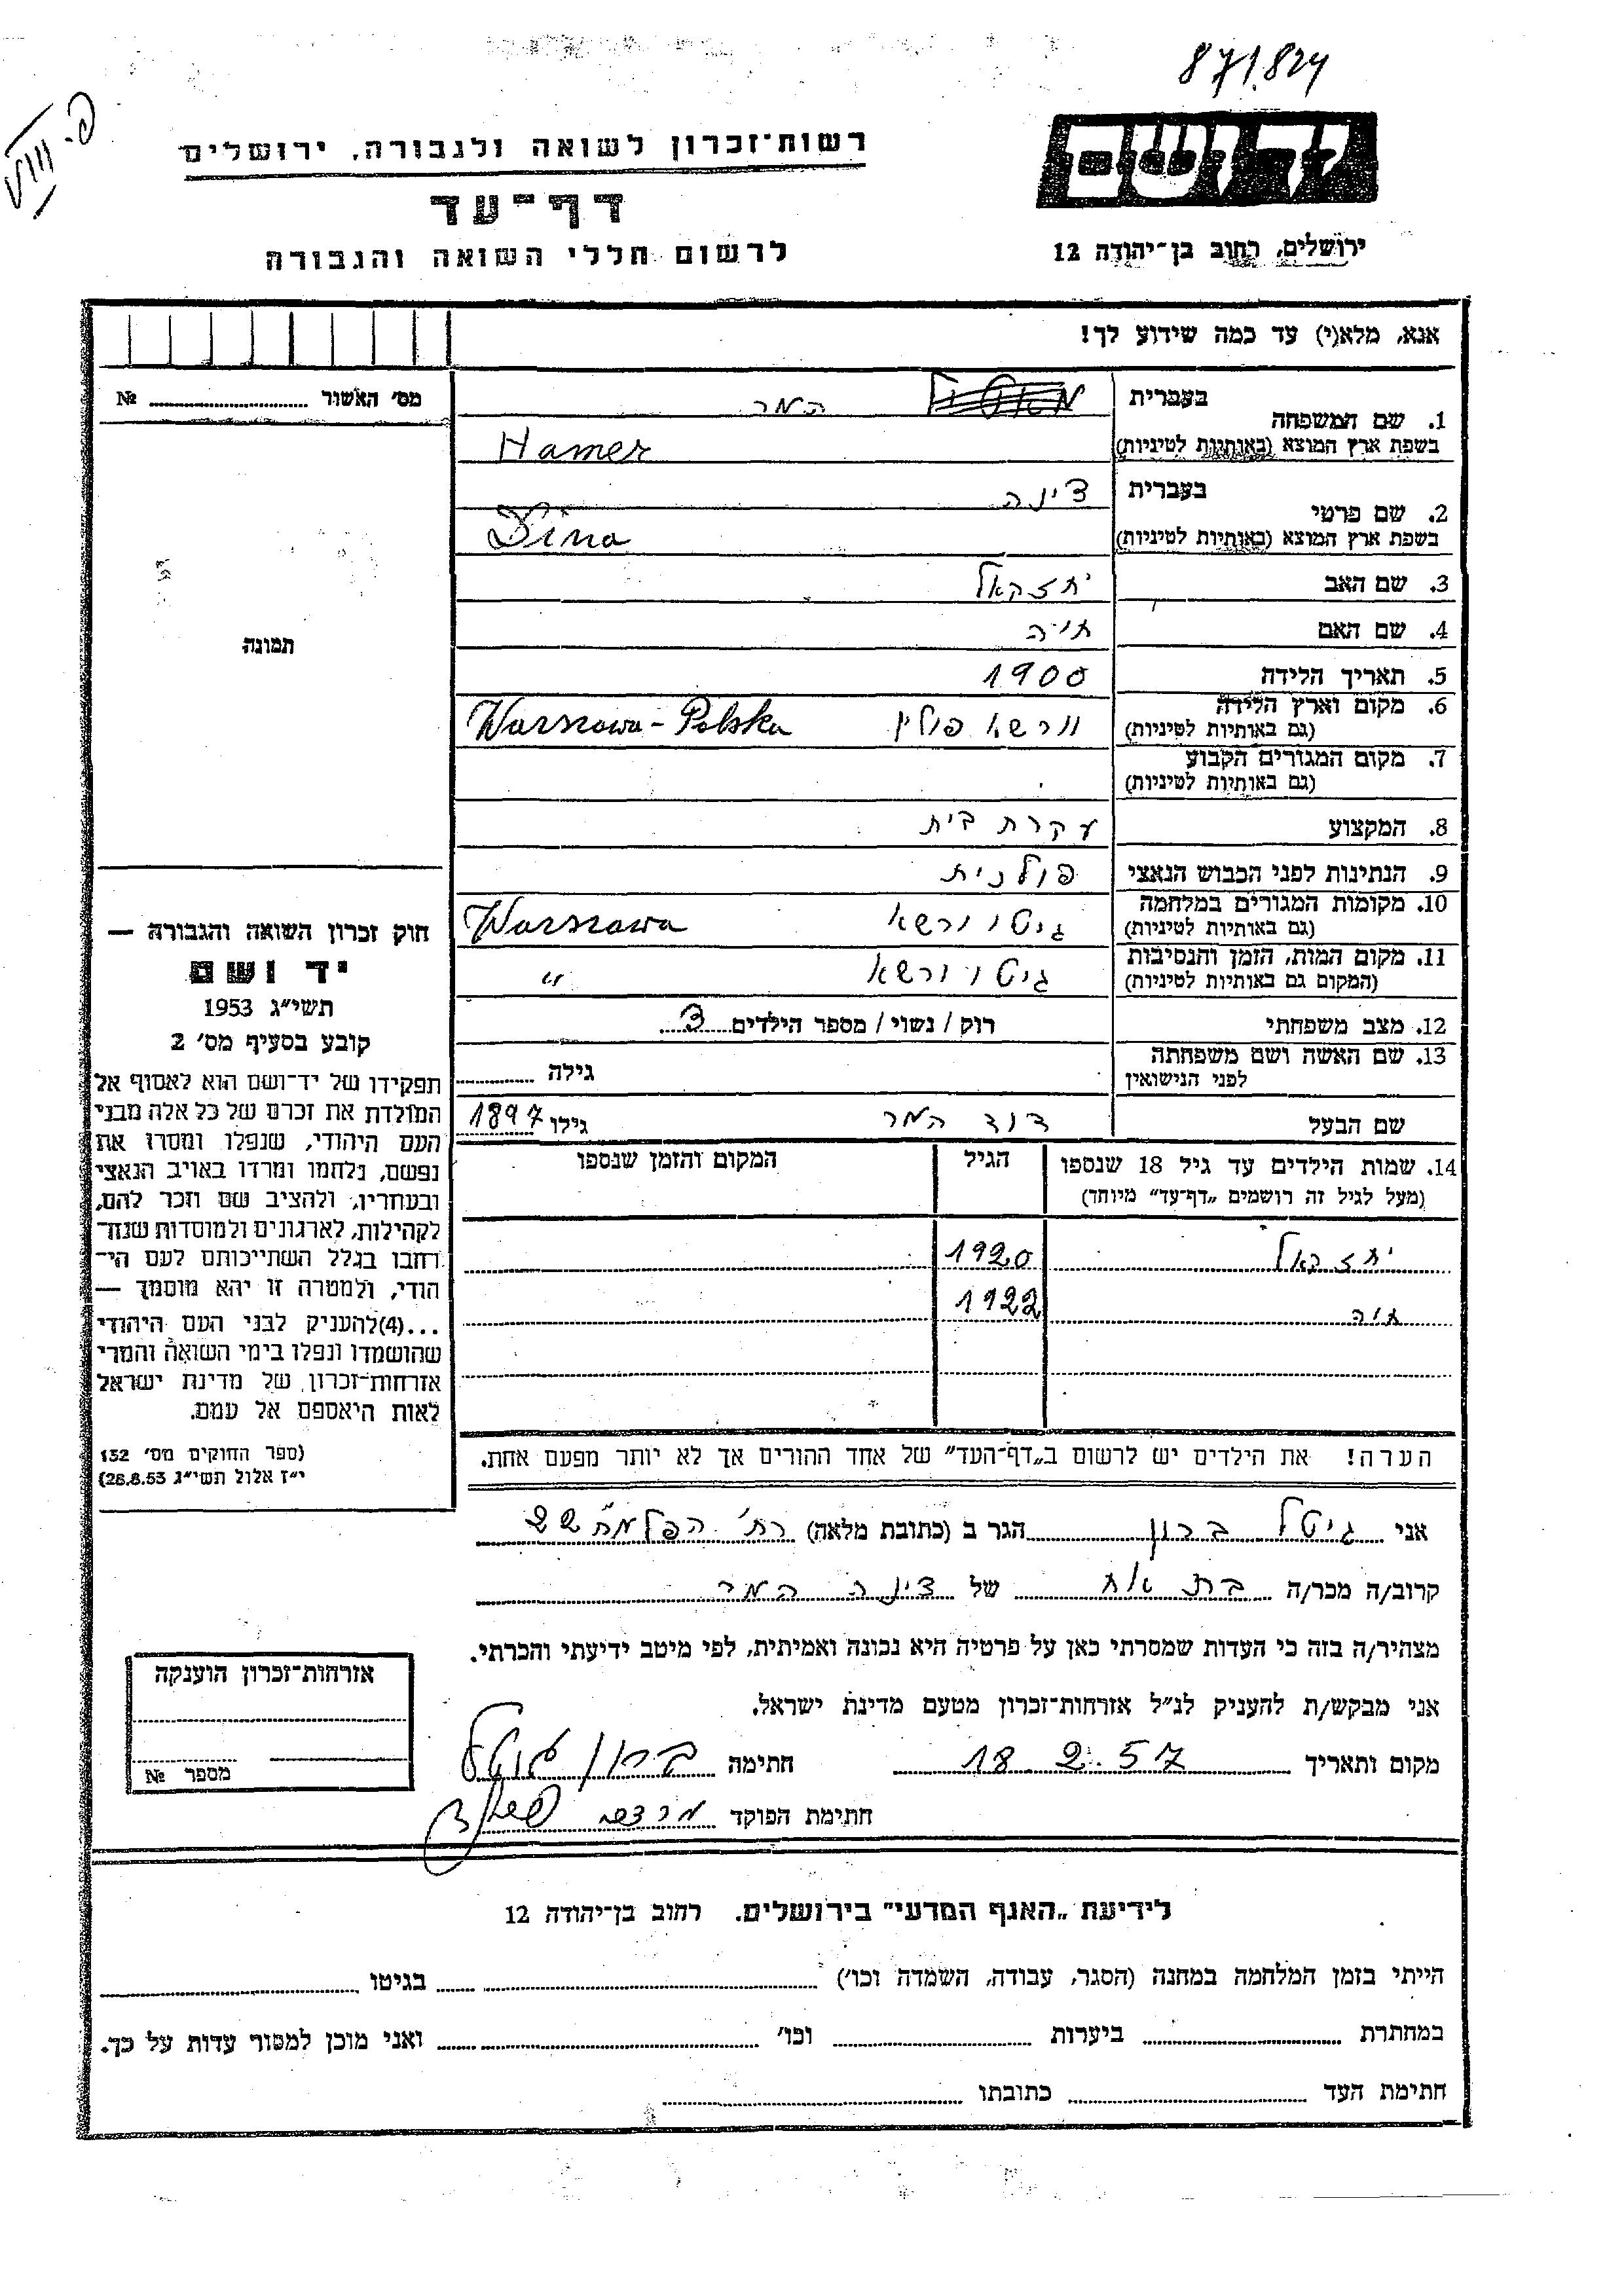 871.824
רשות־זכרון לשואה ולגבורה, ירושלים
דף־עד
לרשום חללי השואה והגבורה
יד ושם
ירושלים, רחוב בן־יהודה 12
אנא, מלא(י) עד כמה שידוע לך!
מס׳ האשור № 
תמונה
1. שם המשפחה
בעברית המר
בשפת ארץ המוצא (באותיות לטיניות) Hamer
2. שם פרטי
בעברית דינה
בשפת ארץ המוצא (באותיות לטיניות) Dina
3. שם האב יחזקאל
4. שם האם חיה
5. תאריך הלידה 1900
6. מקום וארץ הלידה (גם באותיות לטיניות) וורשא פולין Warszawa - Polska
7. מקום המגורים הקבוע (גם באותיות לטיניות)
8. המקצוע עקרת בית
9. הנתינות לפני הכבוש הנאצי פולנית
10. מקומות המגורים במלחמה (גם באותיות לטיניות) גיטו ורשא Warszawa
11. מקום המות, הזמן והנסיבות (המקום גם באותיות לטיניות) גיטו ורשא "
12. מצב משפחתי רוק / נשוי / מספר הילדים 3
13. שם האשה ושם משפחתה לפני הנישואין גילה
שם הבעל דוד המר גילו 1897
14. שמות הילדים עד גיל 18 שנספו
(מעל לגיל זה רושמים „דף־עד” מיוחד)
הגיל
המקום והזמן שנספו
יחזקאל 1920
חוה 1922
הערה! את הילדים יש לרשום ב„דף־העד” של אחד ההורים אך לא יותר מפעם אחת.
חוק זכרון השואה והגבורה —
יד ושם
תשי״ג 1953
קובע בסעיף מס׳ 2
תפקידו של יד־ושם הוא לאסוף אל
המולדת את זכרם של כל אלה מבני
העם היהודי, שנפלו ומסרו את
נפשם, נלחמו ומרדו באויב הנאצי
ובעוזריו, ולהציב שם וזכר להם,
לקהילות, לארגונים ולמוסדות שנח־
רבו בגלל השתייכותם לעם הי־
הודי, ולמטרה זו יהא מוסמך —
...(4) להעניק לבני העם היהודי
שהושמדו ונפלו בימי השואה והמרי
אזרחות־זכרון של מדינת ישראל
לאות היאספם אל עמם.
(ספר החוקים מס׳ 132
י״ז אלול תשי״ג 28.8.53)
אני גיטל ברון הגר ב (כתובת מלאה) רח׳ הפלמ״ח 22
קרוב/ה מכר/ה בת אח של דינה המר
מצהיר/ה בזה כי העדות שמסרתי כאן על פרטיה היא נכונה ואמיתית, לפי מיטב ידיעתי והכרתי.
אני מבקש/ת להעניק לנ״ל אזרחות־זכרון מטעם מדינת ישראל.
מקום ותאריך 18 2.57 חתימה ברון גיטל
חתימת הפוקד
אזרחות־זכרון הוענקה
מספר №
לידיעת „האגף המדעי” בירושלים. רחוב בן־יהודה 12
הייתי בזמן המלחמה במחנה (הסגר, עבודה, השמדה וכו׳) בגיטו
במחתרת ביערות וכו׳ ואני מוכן למסור עדות על כך.
חתימת העד כתובתו